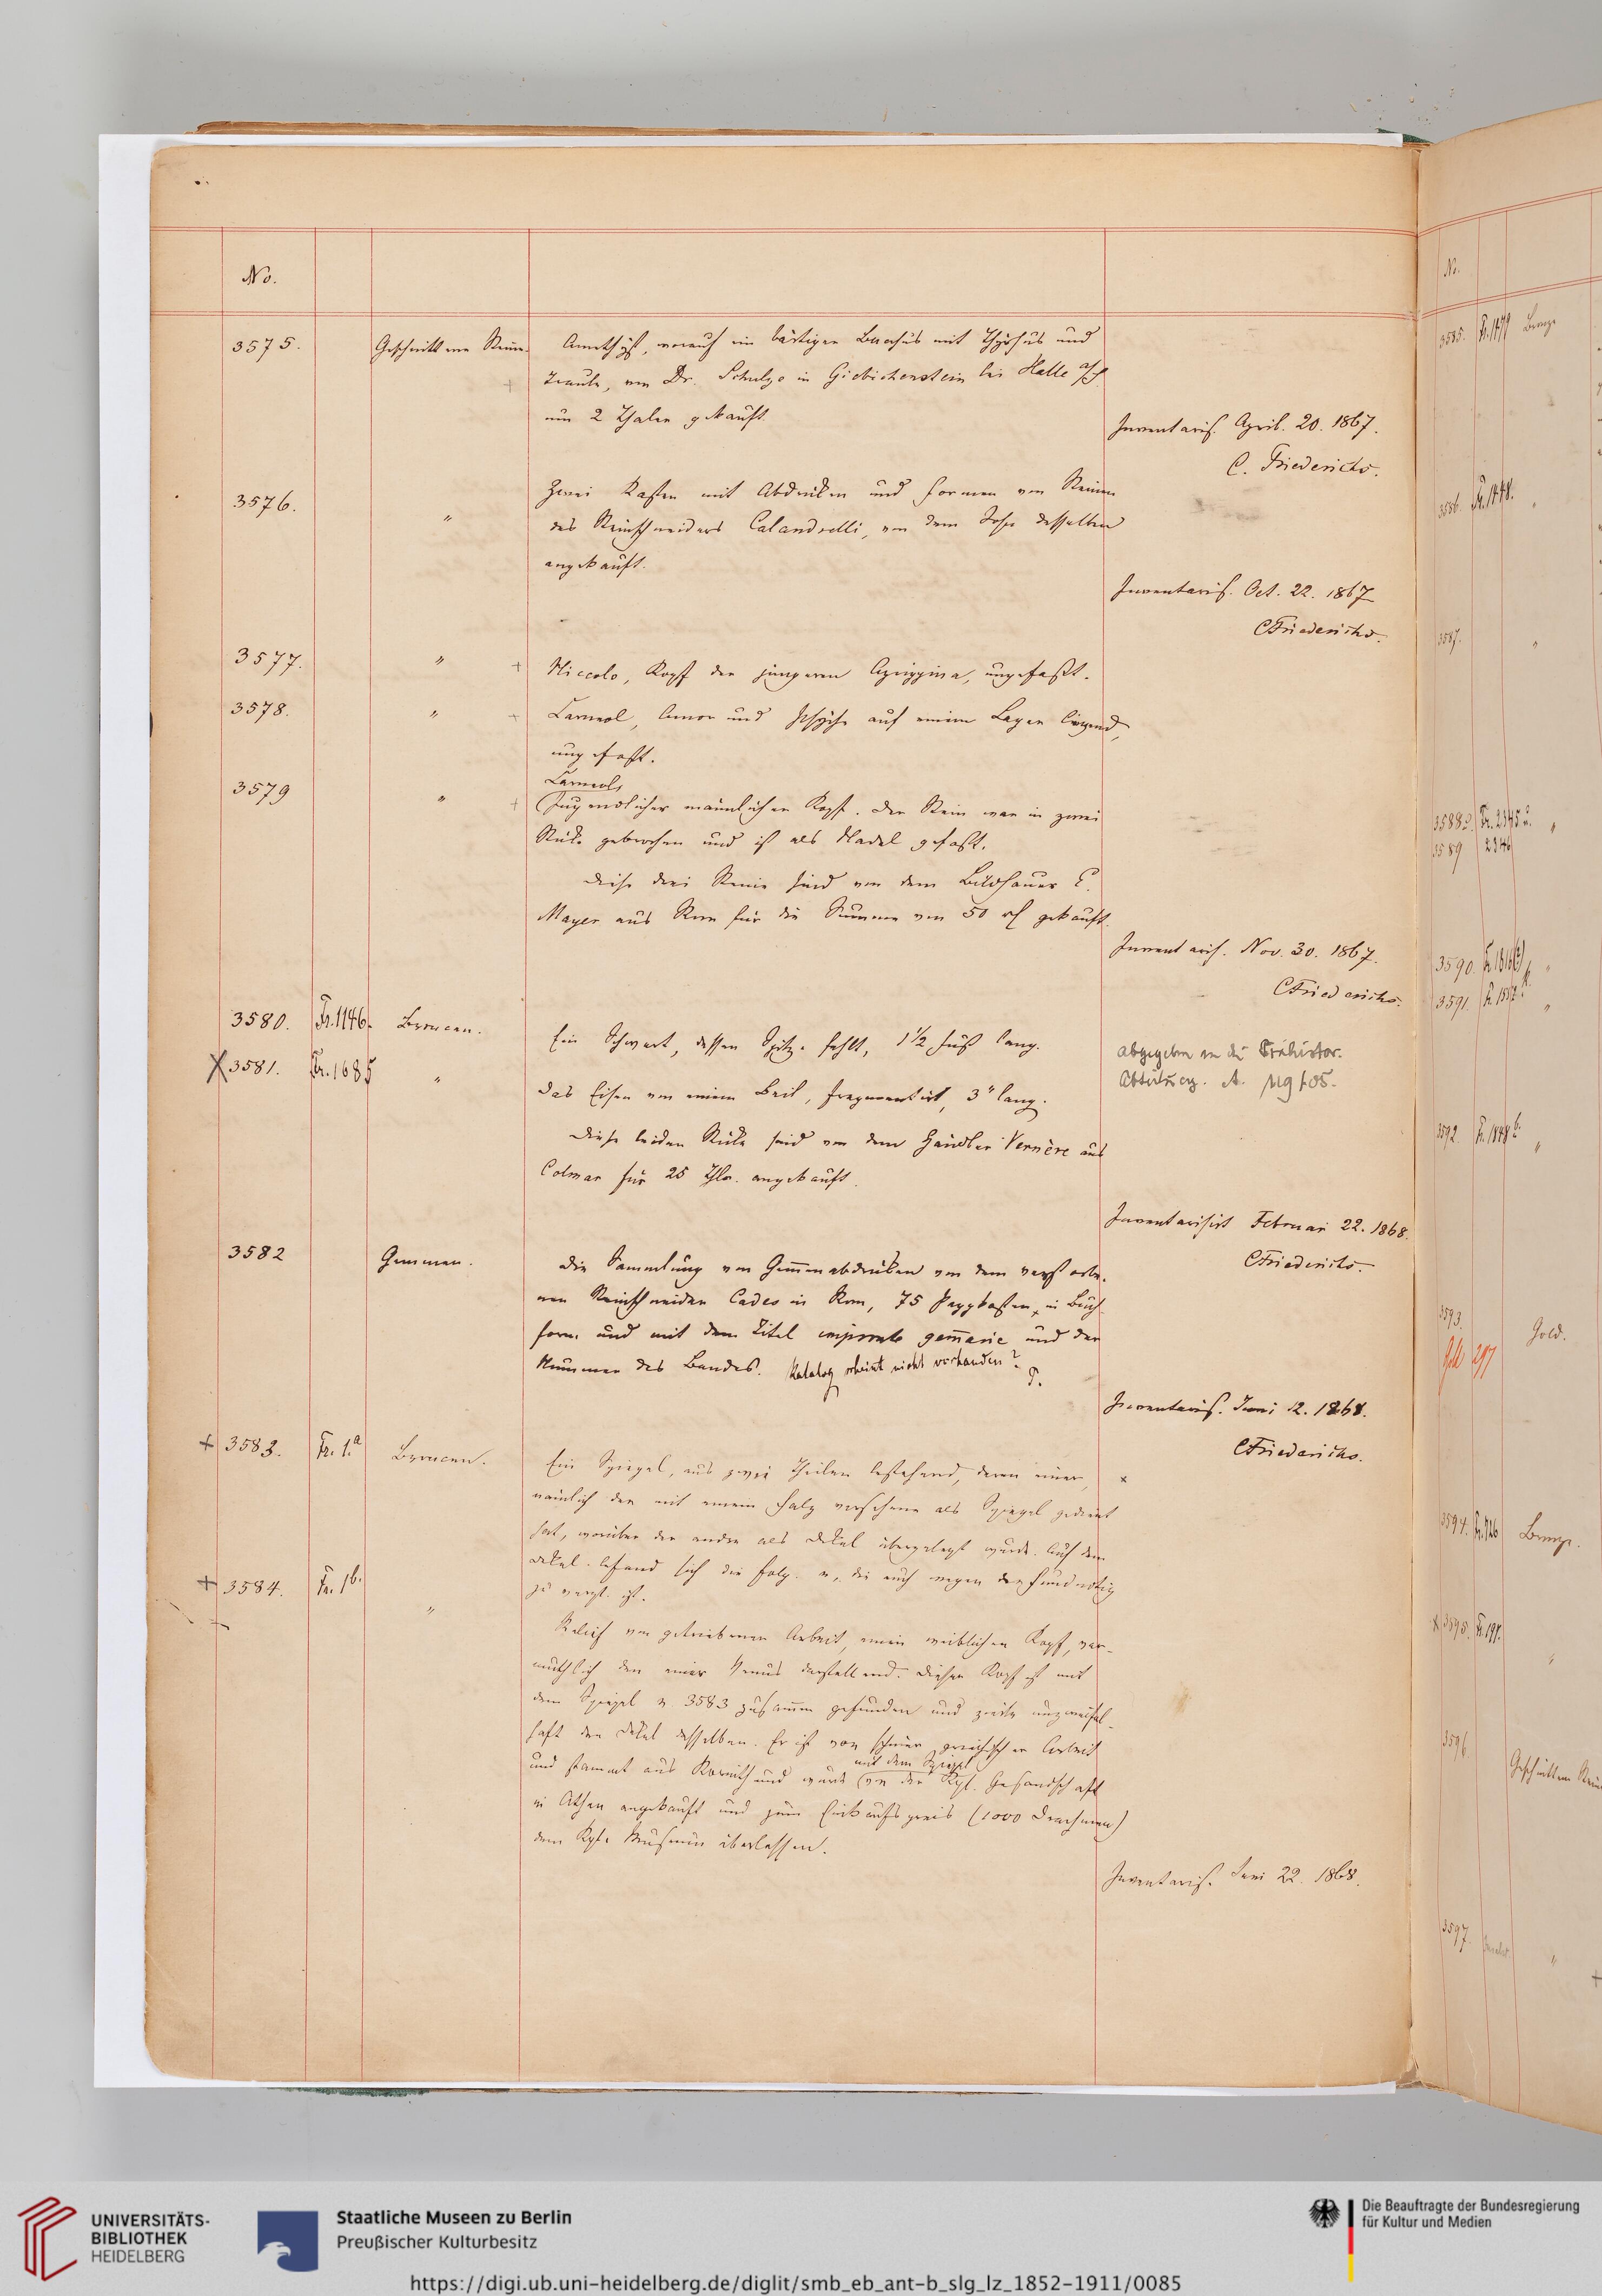 No.
3575. Geschnittene Steine. Amethyst, worauf ein bärtiger Bacchus mit Thyrsus und
Traube, von Dr. Schulze in Giebichenstein bei Halle a/S
um 2 Thaler gekauft.
Inventaris. April. 20. 1867.
C. Friederichs.
3576. " Zwei Kasten mit Abdrücken und Formen von Steinen
des Steinschneiders Calandrelli, von dem Sohn desselben
angekauft.
Inventaris. Oct. 22. 1867
CFriederichs.
3577. " + Niccolo, Kopf der jüngeren Agrippina, ungefaßt.
3578. " + Carneol, Amor und Psyche auf einem Lager liegend,
ungefaßt.
Carneol,
3579 " + Jugendlicher männlicher Kopf. Der Stein war in zwei
Stücke gebrochen und ist als Nadel gefaßt.
Diese drei Steine sind von dem Bildhauer E.
Mayer aus Rom für die Summe von 50 gekauft.
Inventaris. Nov. 30. 1867.
CFriederichs.
3580. Fr. 1146. Broncen. Ein Schwert, dessen Spitze fehlt, 1 1/2 Fuß lang.
X 3581. Fr. 1685 " Das Eisen von einem Beil, fragmentirt, 3" lang.
abgegeben an die Prähistor.
Abteilung.
Diese beiden Stücke sind von dem Händler Vernère aus
Colmar für 25 Thlr. angekauft.
Inventarisirt Februar 22. 1868.
CFriederichs.
3582 Gemmen. Die Sammlung von Gemmenabdrücken von dem verstorbe-
nen Steinschneider Cades in Rom, 75 Pappkasten, in Buch-
form und mit dem Titel impronte gemarie und der
Nummer des Bandes. Katalog scheint nicht vorhanden?
Inventaris. Juni 12. 1868.
CFriederichs.
+ 3583. Fr. 1.a Broncen. Ein Spiegel, aus zwei Theilen bestehend, deren einer,
nämlich der mit einem Falz versehene als Spiegel gedient
hat, worüber der andre als Deckel übergelegt wurde. Auf dem
Deckel befand sich die folg. n., die auch wegen der Fundnotiz
zu vergl. ist.
+ 3584. Fr. 1b. " Relief von getriebener Arbeit, einen weiblichen Kopf, ver-
muthlich den einer Venus darstellend. Dieser Kopf ist mit
dem Spiegel n. 3583 zusammen gefunden und zierte unzweifel-
haft den Deckel desselben. Er ist von schöner griechischer Arbeit
mit dem Spiegel
und stammt aus Korinth und wurde von der Kgl. Gesandschaft
in Athen angekauft und zum Einkaufspreis (1000 Drachmen)
dem Kgl. Museum überlassen.
Inventaris. Juni 22. 1868.
No.
3585. Fr. 1479 Bronze
3586. Fr. 1448. "
3587. "
3588 Fr. 2345 u. "
3589 2346
3590. "
3591. "
3592. "
3593. Gold.
Gold 297
3594. Fr. 726 Bronze.
3595. Fr. 191. "
3596 Geschnittene
3597. "
UNIVERSITÄTS-
BIBLIOTHEK
HEIDELBERG
Staatliche Museen zu Berlin
Preußischer Kulturbesitz
Die Beauftragte der Bundesregierung
für Kultur und Medien
https://digi.ub.uni-heidelberg.de/diglit/smb_eb_ant-b_slg_lz_1852-1911/0085